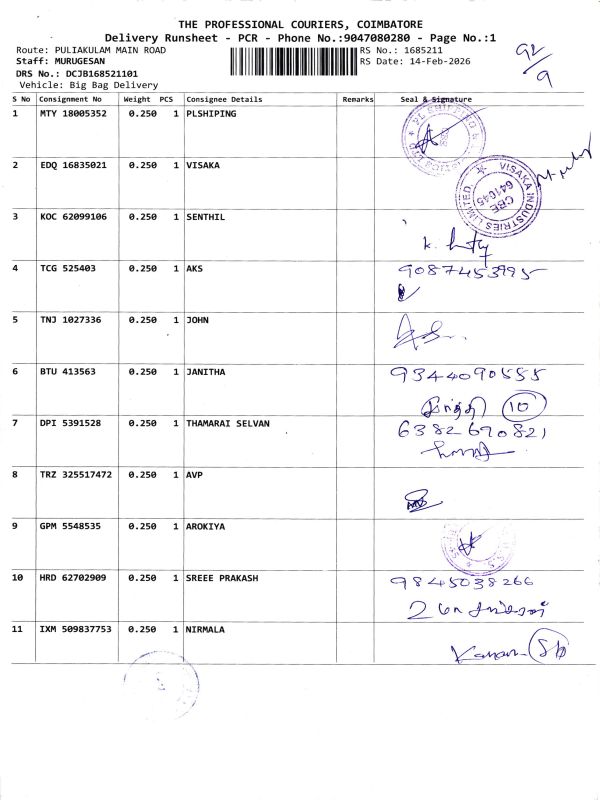 THE PROFESSIONAL COURIERS, COIMBATORE
Delivery Runsheet - PCR - Phone No.:9047080280 - Page No.:1
Route: PULIAKULAM MAIN ROAD
RS No.: 1685211
Staff: MURUGESAN
RS Date: 14-Feb-2026
DRS No.: DCJB168521101
Vehicle: Big Bag Delivery
92/9
S No Consignment No Weight PCS Consignee Details Remarks Seal & Signature
1 MTY 18005352 0.250 1 PLSHIPING
2 EDQ 16835021 0.250 1 VISAKA
VISAKA INDUSTRIES LIMITED
CBE
641045
3 KOC 62099106 0.250 1 SENTHIL
4 TCG 525403 0.250 1 AKS 9087453995
5 TNJ 1027336 0.250 1 JOHN
6 BTU 413563 0.250 1 JANITHA 9344090555
10
7 DPI 5391528 0.250 1 THAMARAI SELVAN 6382690821
8 TRZ 325517472 0.250 1 AVP
9 GPM 5548535 0.250 1 AROKIYA
10 HRD 62702909 0.250 1 SREEE PRAKASH 9845038266
11 IXM 509837753 0.250 1 NIRMALA